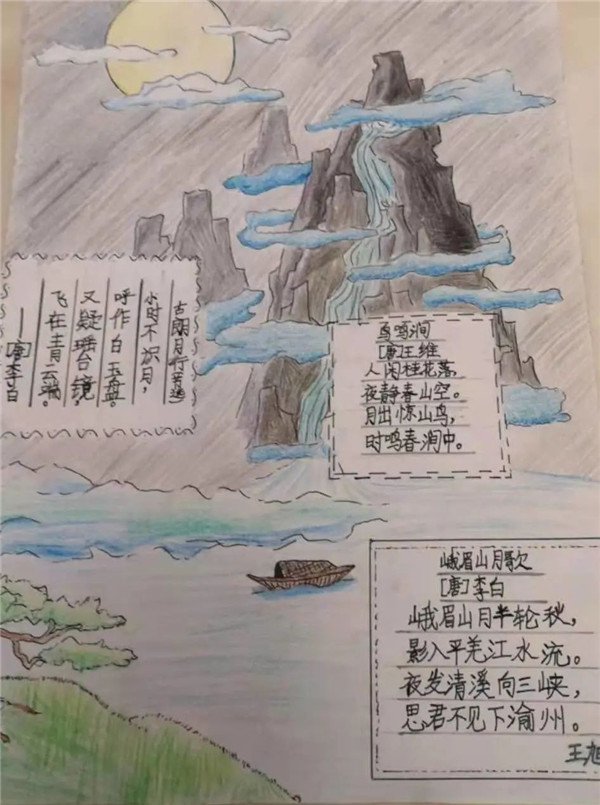 古朗月行(节选)
小时不识月,
呼作白玉盘。
又疑瑶台镜,
飞在青云端。
——[唐]李白
鸟鸣涧
[唐]王维
人闲桂花落,
夜静春山空。
月出惊山鸟,
时鸣春涧中。
峨眉山月歌
[唐]李白
峨眉山月半轮秋,
影入平羌江水流。
夜发清溪向三峡,
思君不见下渝州。
王旭